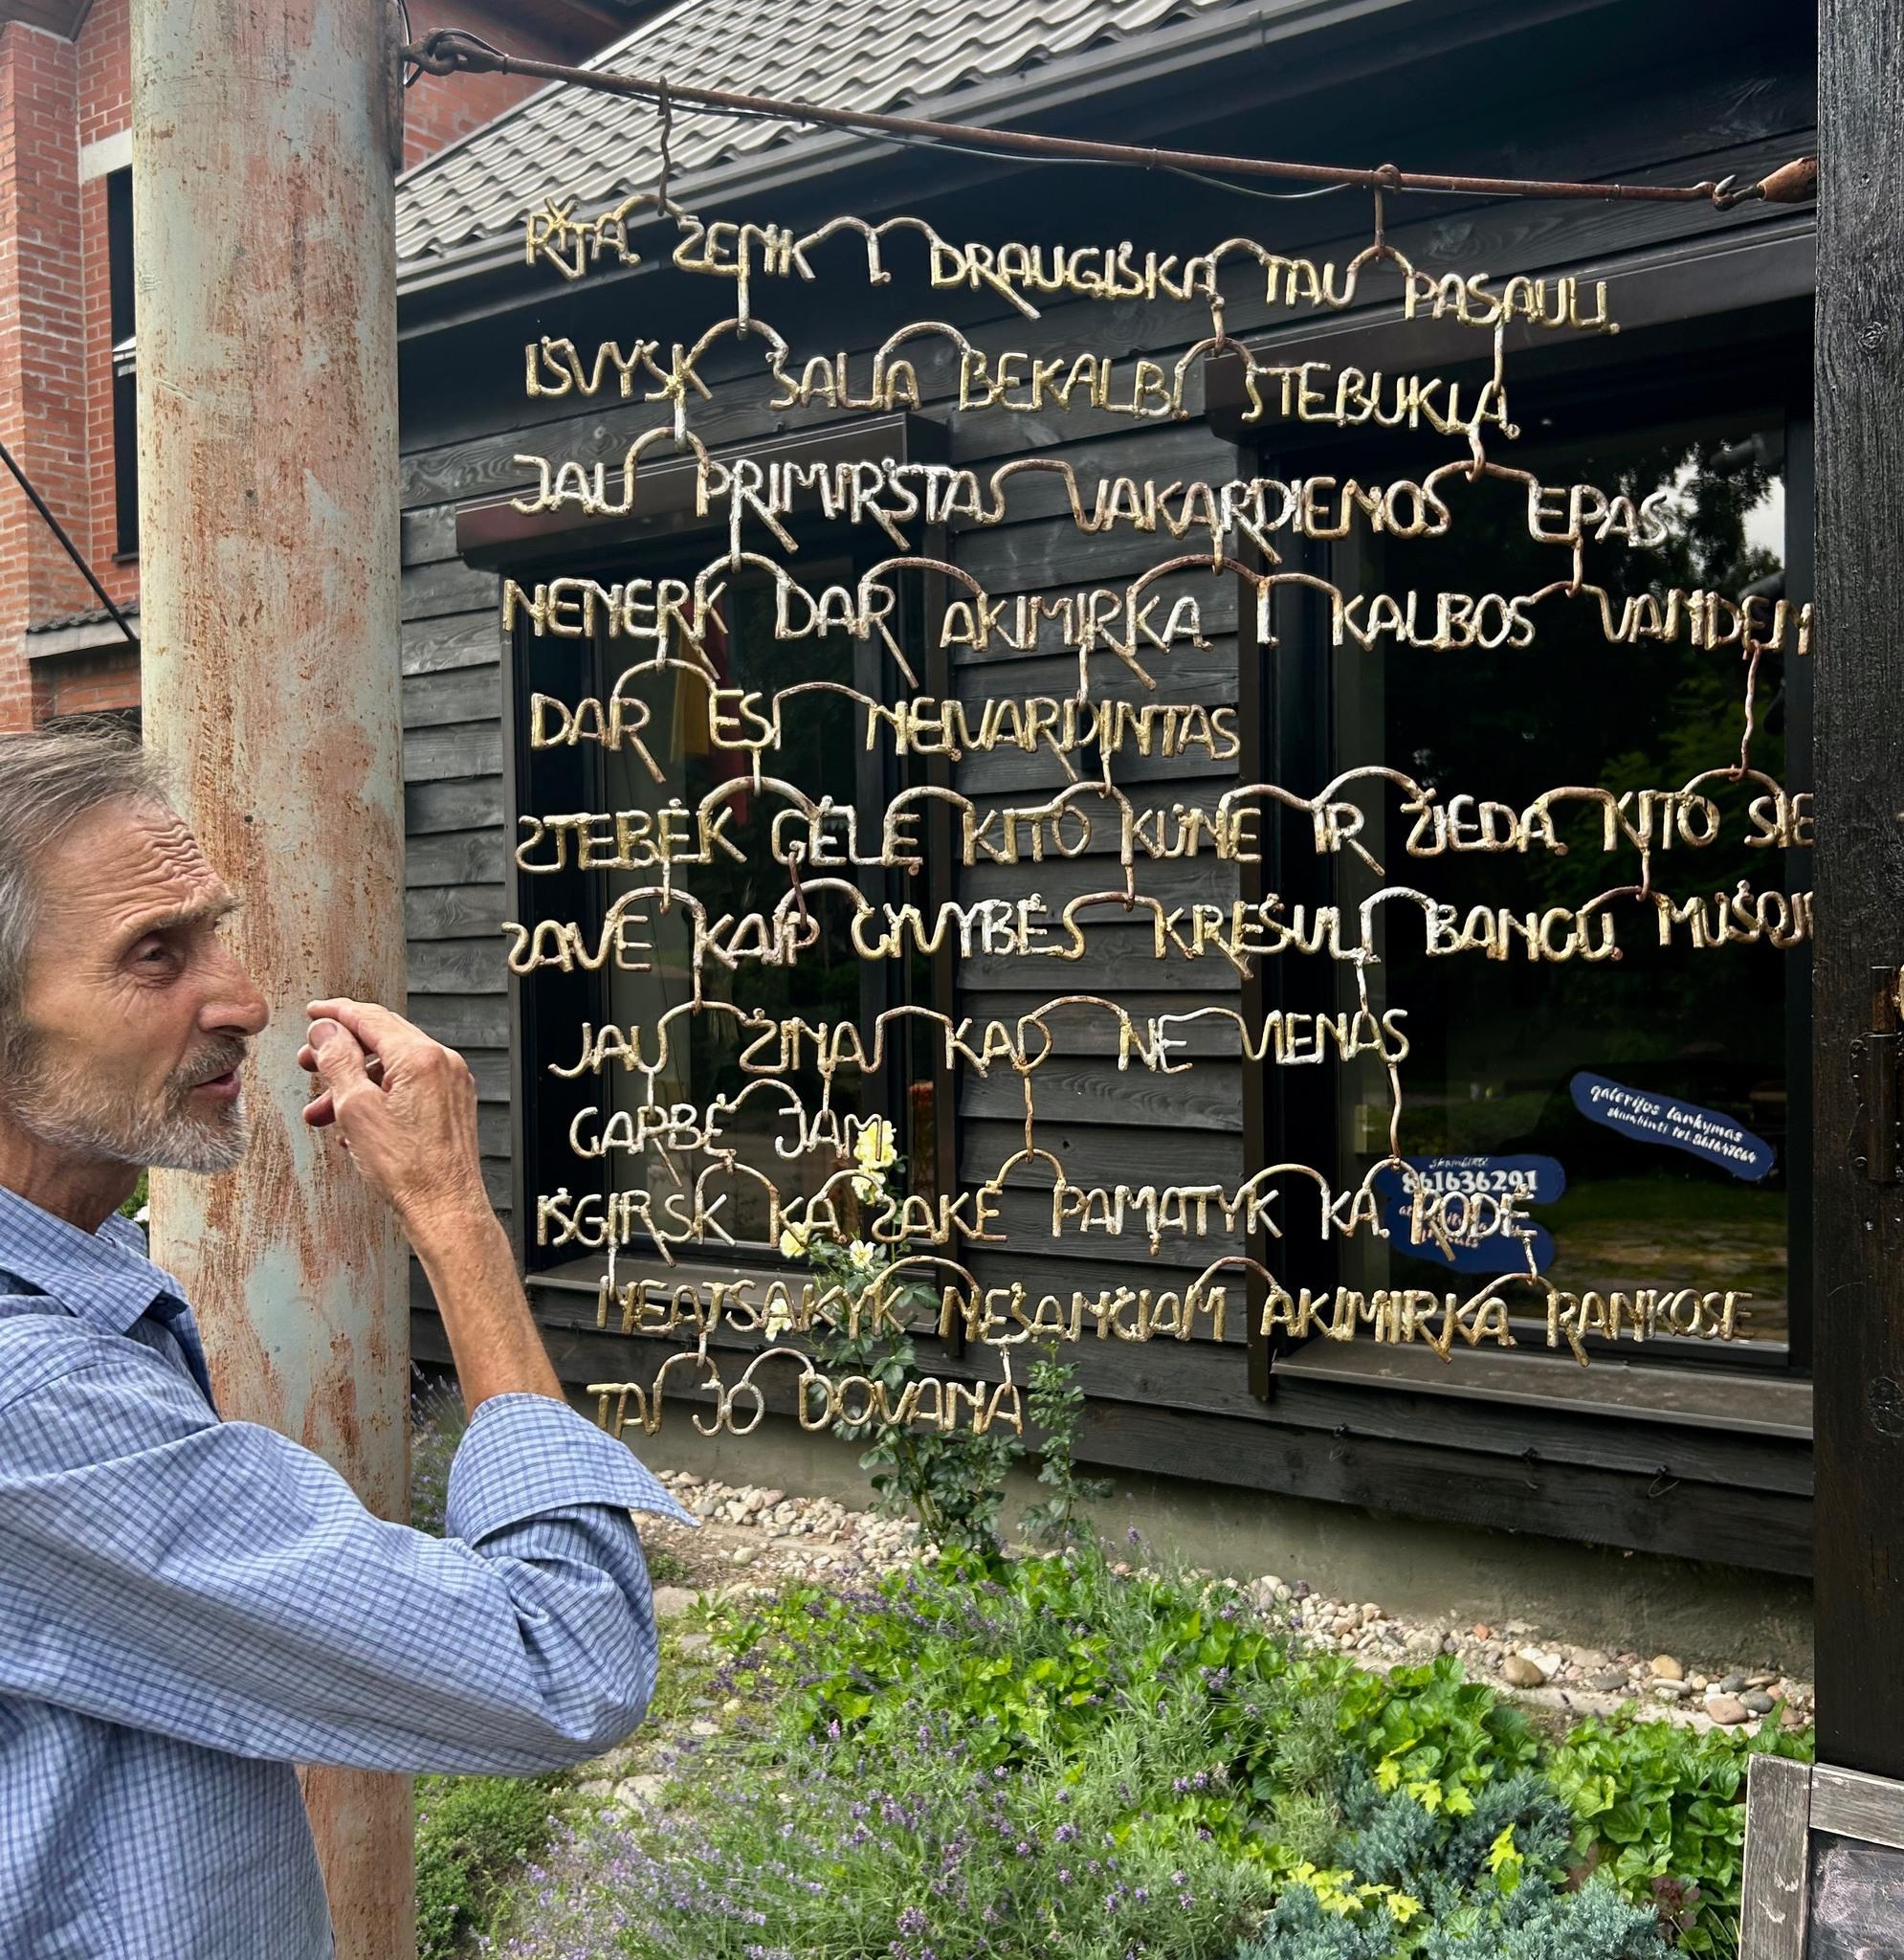 RYTĄ ŽENK Į DRAUGIŠKĄ TAU PASAULĮ
IŠVYSK ŠALIA BEKALBĮ STEBUKLĄ
JAU PRIMIRŠTAS VAKARDIENOS EPAS
NENERK DAR AKIMIRKĄ Į KALBOS VANDEN
DAR ESI NEĮVARDINTAS
STEBĖK GĖLĘ KITO KŪNE IR ŽIEDĄ KITO SIE
SAVE KAIP GYVYBĖS KREŠULĮ BANGŲ MŪŠOJ
JAU ŽINAI KAD NE VIENAS
GARBĖ JAM
IŠGIRSK KĄ SAKĖ PAMATYK KĄ RODĖ
NEATSAKYK NEŠANČIAM AKIMIRKĄ RANKOSE
TAI JO DOVANA
galerijos lankymas
skambinti tel. 861647064
skambinti
861636291